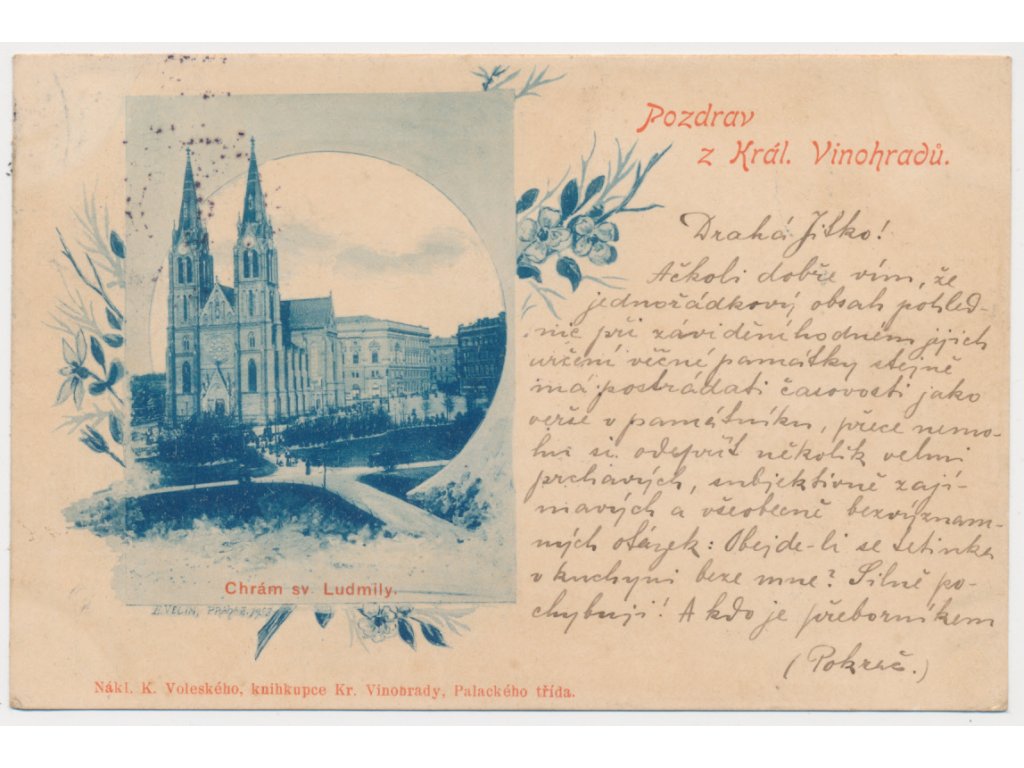 Pozdrav
z Král. Vinohradů.
Drahá Jitko!
Ačkoli dobře vím, že
jednořádkový obsah pohled-
nic při záviděníhodném jejich
určení věčné památky stejně
má postrádati časovosti jako
verše v památníku, přece nemo-
hu si odepřít několik velmi
prchavých, subjektivně zají-
mavých a všeobecně bezvýznam-
ných otázek: Obejde-li se tetinka
v kuchyni beze mne? Silně po-
chybuji! A kdo je přeborníkem
(Pokrač.)
Chrám sv. Ludmily.
Nákl. K. Voleského, knihkupce Kr. Vinohrady, Palackého třída.